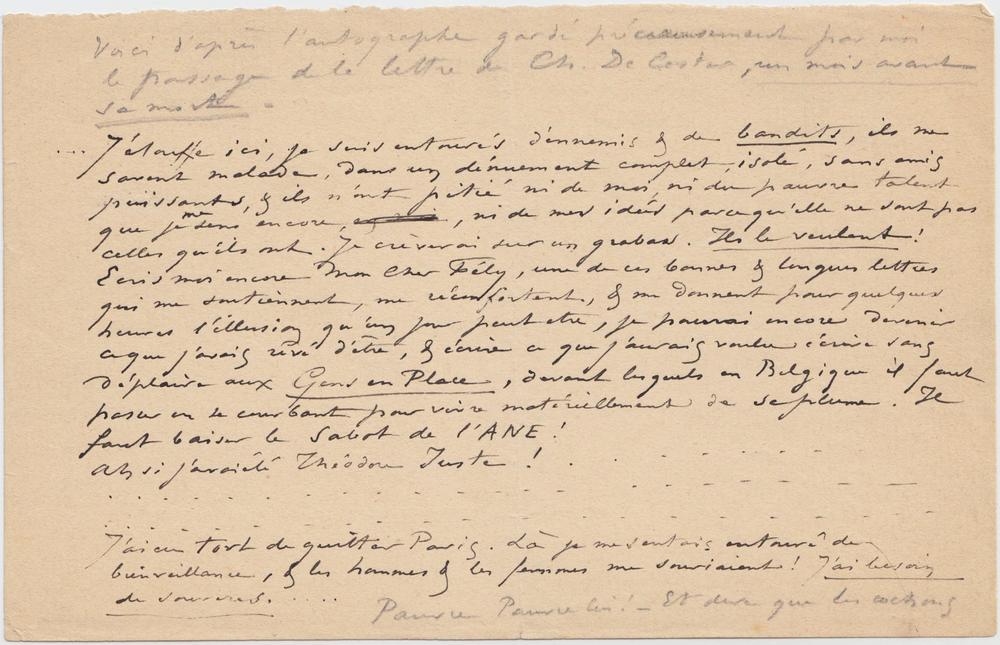 Voici d'après l'autographe gardé précieusement par moi
le passage de la lettre de Ch. De Coster, un mois avant
sa mort -
.... J'étouffe ici, je suis entourés d'ennemis & de bandits, ils me
savent malade, dans un dénuement complet, isolé, sans amis
puissants, & ils n'ont pitié ni de moi, ni du pauvre talent
que je me sens encore, , ni de mes idées parcequ'elle ne sont pas
celles qu'ils ont. Je crèverai sur un grabas. Ils le veulent !
Ecris moi encore mon Cher Fély, une de ces bonnes & longues lettres
qui me soutiennent, me réconfortent, & me donnent pour quelques
heures l'illusion qu'un jour peut etre, je pourrai encore devenir
ce que j'avais rêvé d'être, & écrire ce que j'aurais voulu écrire sans
déplaire aux Gens en Place, devant lesquels en Belgique il faut
passer en se courbant pour vivre matériellement de sa plume. Il
faut baiser le Sabot de l'ANE !
Ah si j'avais été Théodore Juste ! . . - - - - -
. . . . - - - - - - - - - -
. . . . - - - - - - - - - -
J'ai eu tort de quitter Paris. Là je me sentais entouré de
bienveillance, & les hommes & les femmes me souriaient ! J'ai besoin
de sourires. ....
Pauvre Pauvre lui ! - Et dire que les cochons